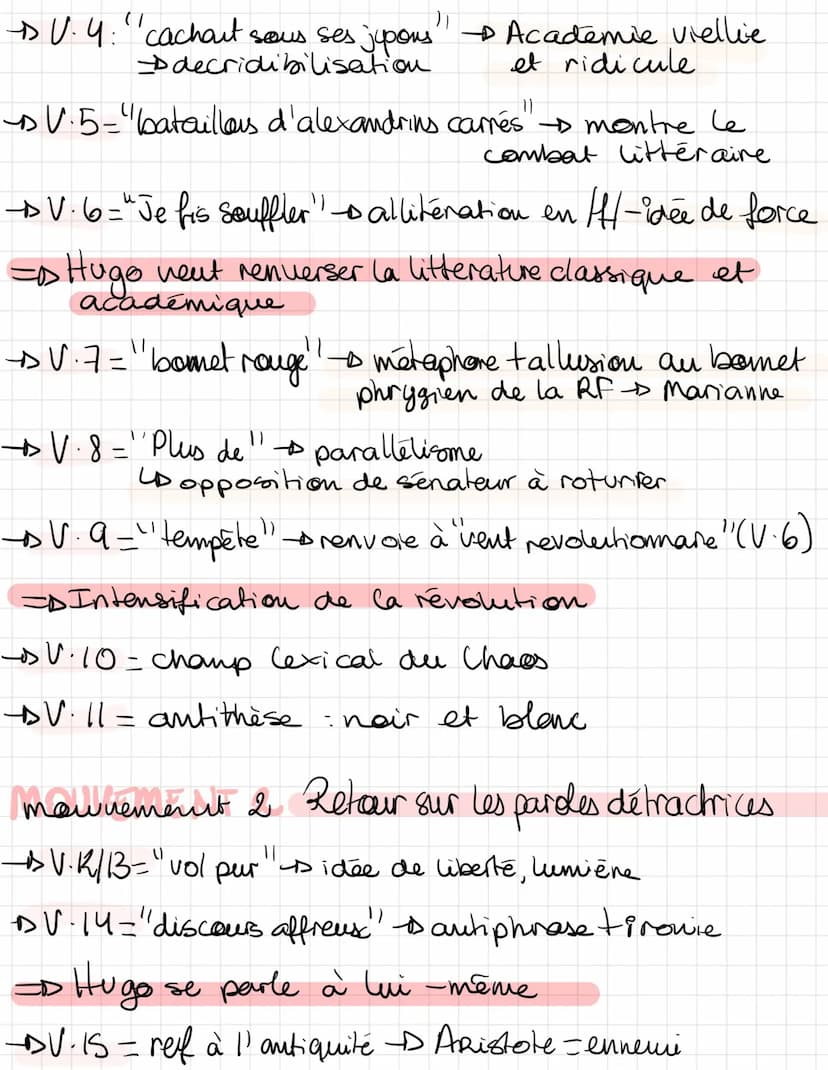 → V.4: "cachait sous ses jupons" → Académie viellie
⇒ decridibilisation et ridicule
→ V.5 = "bataillons d'alexandrins carrés" → montre le
combat littéraire
→ V.6 = "Je fis souffler" → allitération en /f/ - idée de force
⇒ Hugo veut renverser la litterature classique et
académique
→ V.7 = "bonnet rouge" → métaphore + allusion au bonnet
phrygien de la RF → Marianne
→ V.8 = "Plus de" → parallélisme
↳ opposition de sénateur à roturier
→ V.9 = "tempête" → renvoie à "vent revolutionnaire" (V.6)
⇒ Intensification de la révolution
→ V.10 = champ lexical du Chaos
→ V.11 = antithèse : noir et blanc
MOUVEMENT 2 Retour sur les paroles détractrices
mouvement
→ V.12/13 = "vol pur" → idée de liberté, lumière
→ V.14 = "discours affreux" → antiphrase + ironie
⇒ Hugo se parle à lui-même
→ V.15 = ref à l'antiquité → Aristote = ennemi